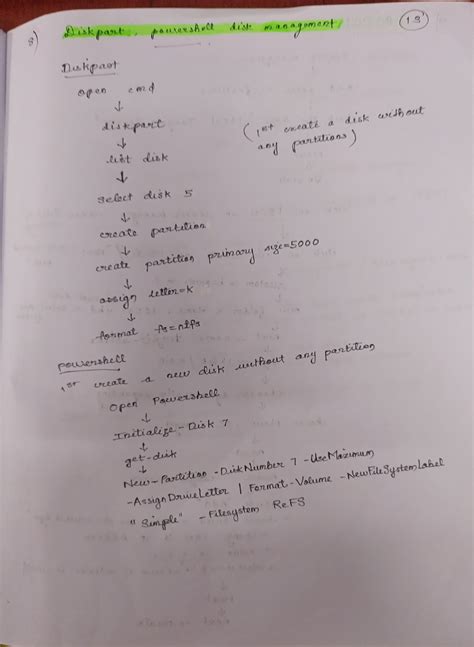 8) Diskpart, powershell disk management 13
Diskpart
open cmd
↓
diskpart
(1st create a disk without
any partitions)
↓
list disk
↓
select disk 5
↓
create partition
↓
create partition primary size=5000
↓
assign letter=k
↓
format fs=ntfs
powershell
1st create a new disk without any partition
Open Powershell
↓
Initialize-Disk 7
↓
get-disk
↓
New-Partition -DiskNumber 7 -UseMaximum
-AssignDriveLetter | Format-Volume -NewFileSystemLabel
"Simple" -Filesystem ReFS